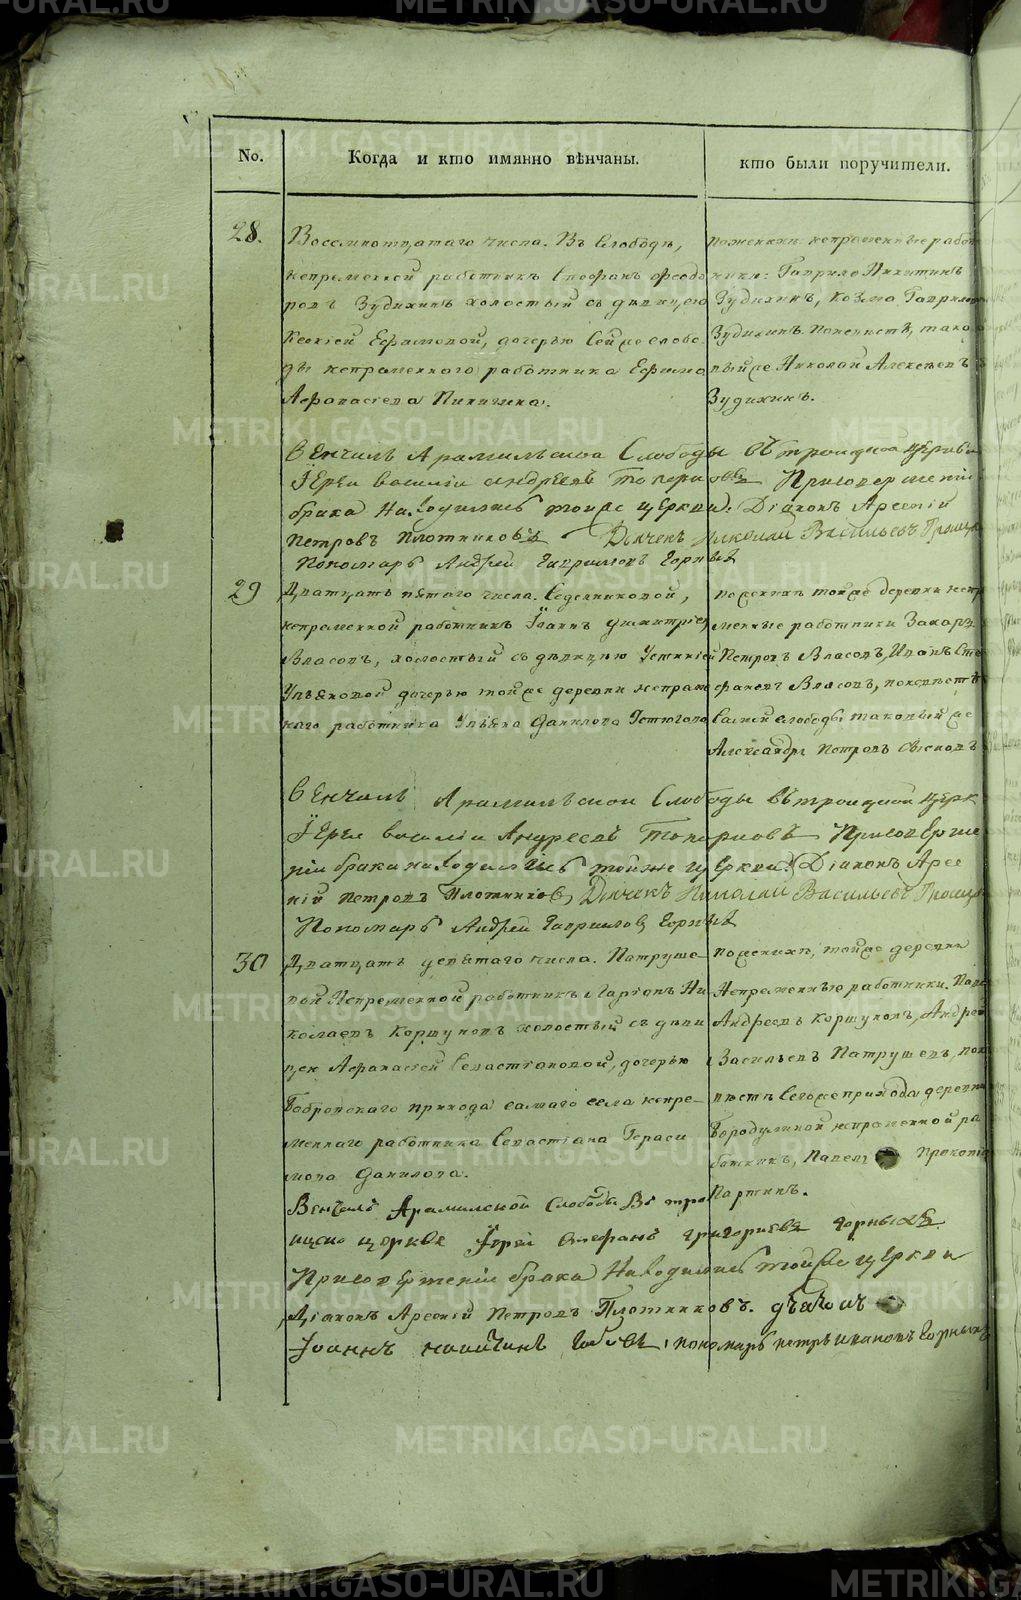 No.
Когда и кто имянно вѣнчаны.
кто были поручители.
28.
Восемнотцатаго числа. Въ Слободѣ,
непременней работникъ Стефанъ Феодо
ровъ Зудихинъ холостый съ дѣвицею
Ксениею Ефимовой, дочерью Сей же слобо
ды непременного работника Ефима
Афанасиева Пинигина.
по женихѣ непременные работ
ники: Гаврило Никитинъ
Зудихинъ, Козма Гаврилов
Зудихинъ. По невистѣ, тако
вый же Николай Алексѣевъ
Зудихинъ.
Венчилъ Арамильскоа Слободы въ троицкоа церкви
Іерей василии андреевъ топорковъ При совершении
брака Находились тойже церкви: Діаконъ Арсений
петровъ Плотниковъ Дьячекъ Николай Васильевъ
Пономарь Андрей Гаврилов Горныхъ
29
Дватцать пятаго числа. Седелниковой,
непременной работникъ Іоанн Димитриев
Власовъ, холостый съ дѣвицею Устиниею
Ульяновой дочерью той же деревни непремѣ
наго работника Ульяна Данилова Устюгова
по женихѣ той же деревни непре
менные работники Захаръ
Петровъ Власовъ, Иванъ Сте
фановъ Власовъ, по невестѣ
Самой слободы таковый же
Александръ Петровъ
Венчилъ Арамильской Слободы въ троицкой церк
Іерей василии Андреевъ Топорковъ При соверше
нии брака находились тойже церкви: Діаконъ Арсе
ний петровъ Плотников, Дьячекъ Николай Васильевъ
Пономарь Андрей Гаврилов Горныхъ
30
Дватцать девятаго числа. Патруше
вой Непременной работникъ Мартинъ Ни
колаевъ Коршуновъ холостый съ дѣви
цей Афанасией Севастиановой, дочерью
Бобровского прихода самаго села непре
меннаго работника Севастиана Гераси
мова Данилова.
по женихѣ, той же деревни
Непременные работники. Павел
Андреевъ Коршуновъ, Андрей
Васильевъ Патрушевъ, по не
вестѣ Сего же прихода деревни
Бородулиной непременной ра
ботникъ, Павелъ Прокопи
Партинъ.
Венчалъ Арамилской Слободы Въ тро
ицкои церкве Іерей Стефанъ григориевъ горныхъ
При совершении брака Находились тойже церкви
Діаконъ Арсений Петровъ Плотниковъ. дьячокъ
Іоаннъ пономарь петръ ивановъ Горныхъ
METRIKI.GASO-URAL.RU